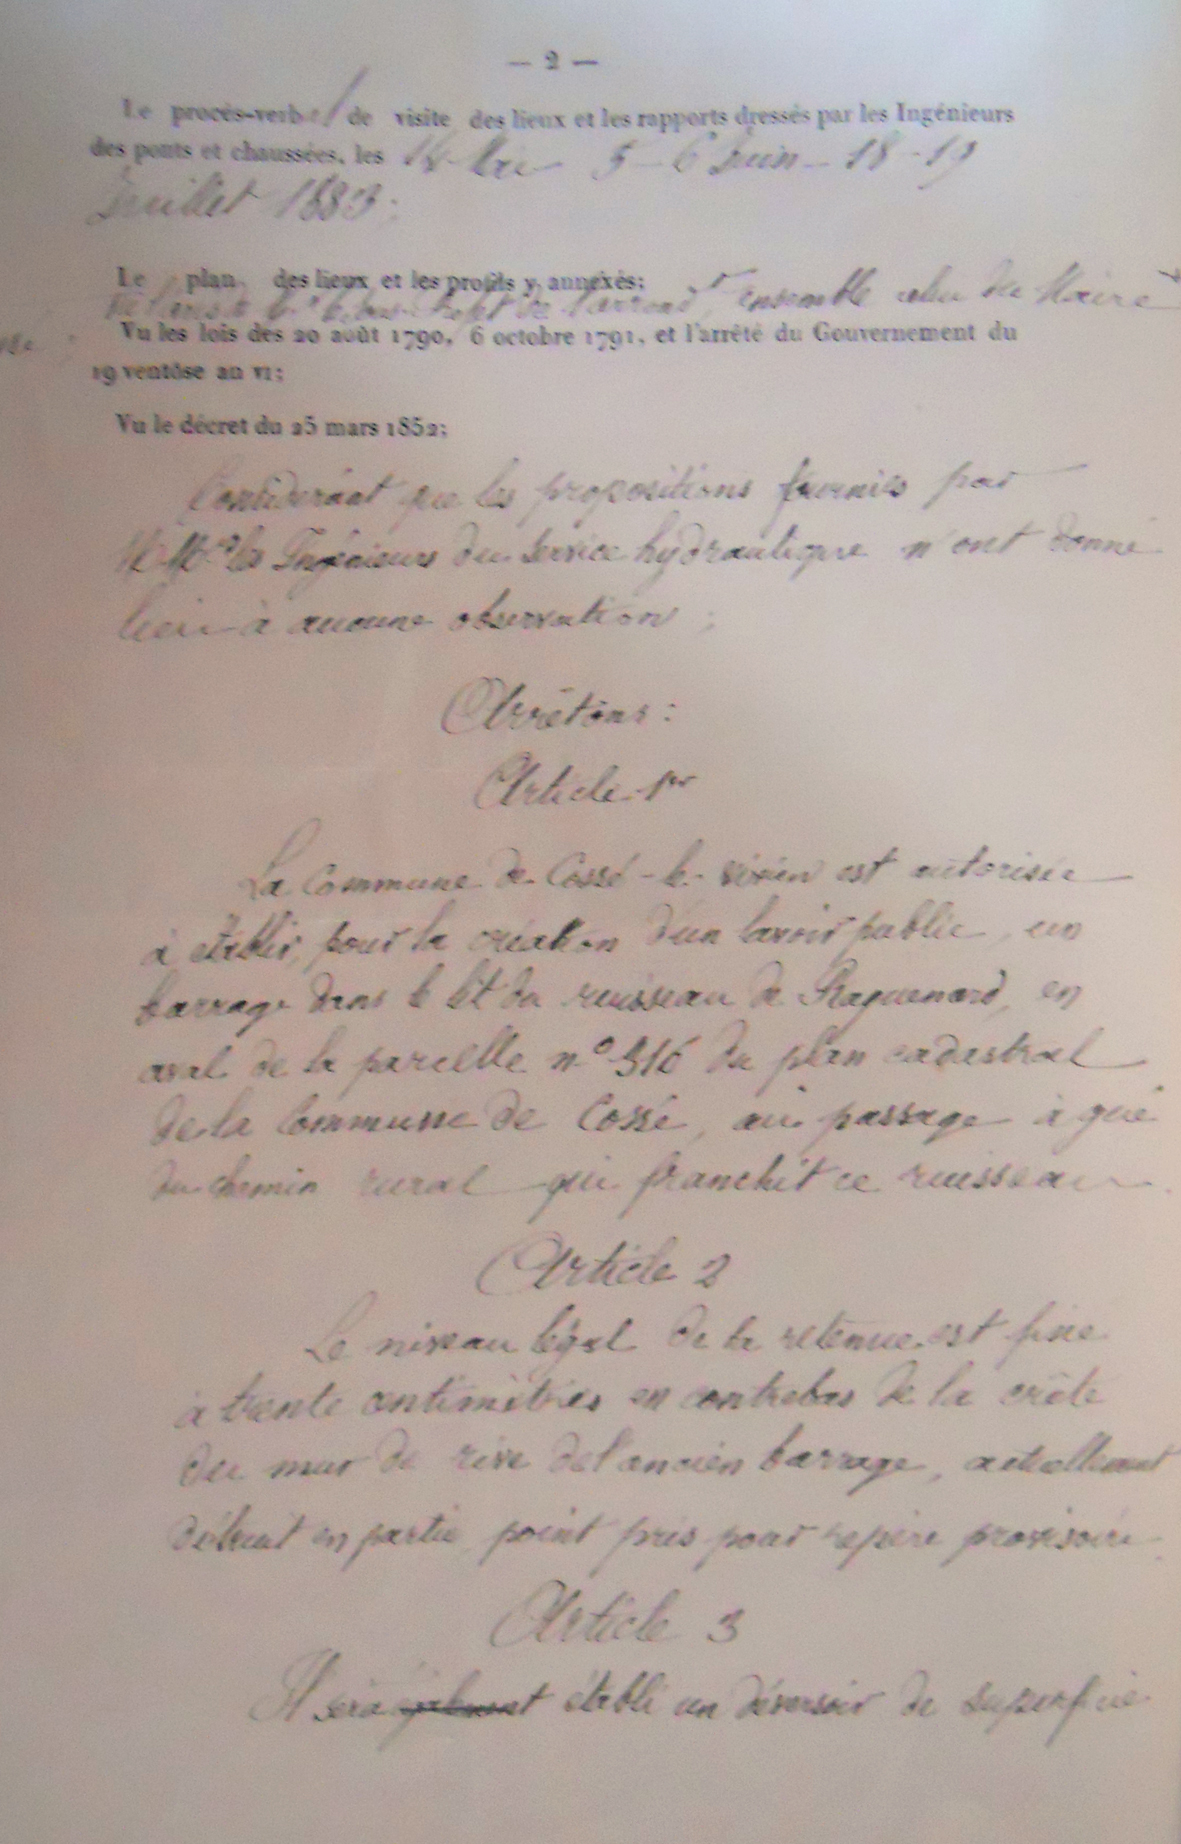 — 2 —
Le procès-verbal de visite des lieux et les rapports dressés par les Ingénieurs
des ponts et chaussées, les 14 Mai 5 - 6 Juin - 18 - 19
Juillet 1883;
Le plan des lieux et les profils y annexés;
l'avis de M. le Sous-Préfet de l'arrond.t ensemble celui du Maire
Vu les lois des 20 août 1790, 6 octobre 1791, et l'arrêté du Gouvernement du
19 ventôse an VI;
Vu le décret du 25 mars 1852;
Considérant que les propositions fournies par
M.M.rs les Ingénieurs du Service hydraulique n'ont donné
lieu à aucune observation;
Arrêtons:
Article 1er
La Commune de Cossé-le-vivien est autorisée
à établir, pour la création d'un lavoir public, un
barrage dans le lit du ruisseau de Raguenard, en
aval de la parcelle n° 516 du plan cadastral
de la Commune de Cossé, au passage à gué
du chemin rural qui franchit ce ruisseau.
Article 2
Le niveau légal de la retenue est fixé
à trente centimètres en contrebas de la crête
du mur de rive de l'ancien barrage, actuellement
détruit en partie, point pris pour repère provisoire.
Article 3
Il sera établi un déversoir de superficie